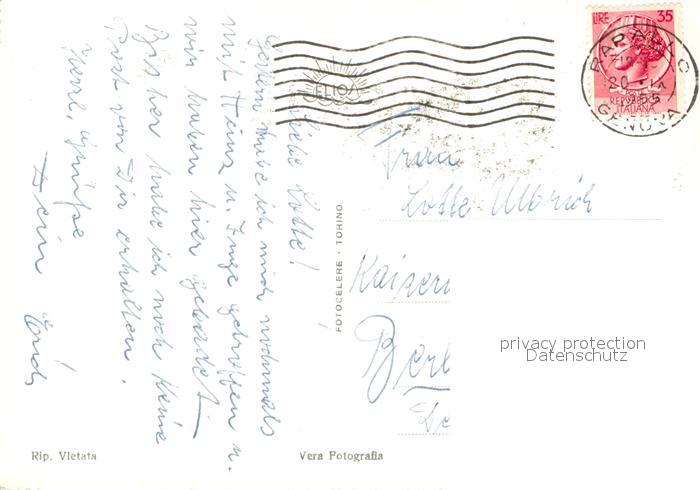 Liebe Lotte!
Gestern habe ich mich nochmals
mit Heinz u. Inge getroffen u.
wir haben hier gebadet.
Bis her habe ich noch keine
Post von Dir erhalten.
Herzl. Grüße
Dein Erich
FOTOCELERE · TORINO
ELIOS
LIRE 35
REPUBBLICA
ITALIANA
RAPALLO
GENOVA
Frau
Lotte Ulbrich
Kaisern
Berl
privacy protection
Datenschutz
Rip. Vietata
Vera Fotografia